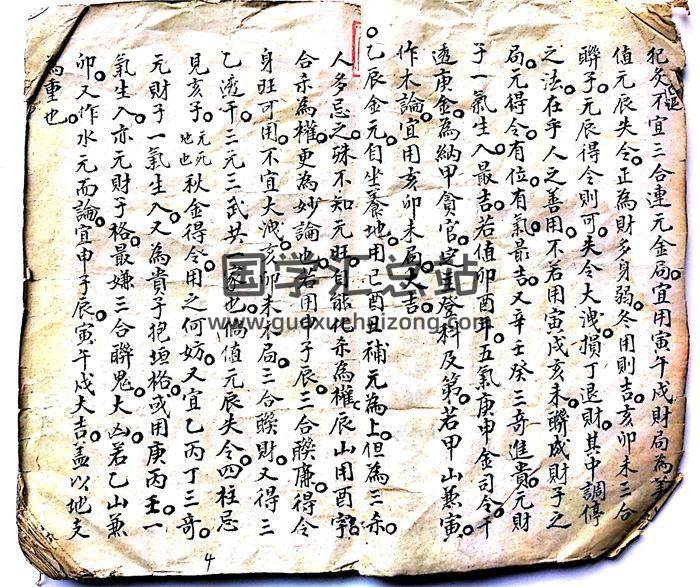 犯炙不宜三合連元金局宜用寅午戌財局為
值元辰失令正為財多身弱冬用則吉亥卯未三合
聯子元辰得令則可失令大洩損丁退財其中調停
之法在乎人之善用不若用寅戌亥未聯成財子之
局元得令有位有氣最吉又辛壬癸三奇進貴元財
于一氣生入最吉若值卯酉年五氣庚申金司令干
透庚金為納甲貪官定登科及第若甲山兼寅
作木論宜用亥卯未局大吉
乙辰金元自坐養地用己酉丑補元為上但為三杀
人多忌之殊不知元旺自能化杀為權辰山用酉字
合杀為權更為妙論也若用申子辰三合聯廉得令
身旺可用不宜大洩亥卯未木局三合聯財又得三
乙透干三元三武共一家也倘值元辰失令四柱忌
見亥子地也元死秋金得令用之何妨又宜乙丙丁三奇
元財子一氣生入又為貴子抱垣格或用庚丙壬一
氣生入亦元財子格最嫌三合聯鬼大凶若乙山兼
卯又作水元而論宜申子辰寅午戌大吉盖以地支
為重也
4
国学汇总站
www.guoxuehuizong.com